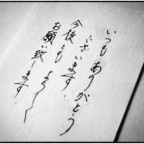 いつもありがとう
ございます
今後ともよろしく
お願い致します。